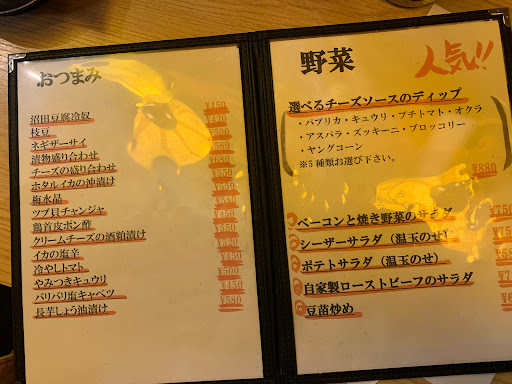 おつまみ
沼田豆腐冷奴
枝豆
ネギザーサイ
漬物盛り合わせ
チーズの盛り合わせ
ホタルイカの沖漬け
梅水晶
ツブ貝チャンジャ
鶏首皮ポン酢
クリームチーズの酒粕漬け
イカの塩辛
冷やしトマト
やみつきキュウリ
パリパリ塩キャベツ
長芋しょう油漬け
¥450
¥420
¥500
¥550
¥550
¥520
¥450
¥500
¥450
¥580
野菜
人気!!
選べるチーズソースのディップ
・パプリカ・キュウリ・プチトマト・オクラ
・アスパラ・ズッキーニ・ブロッコリー
・ヤングコーン
※5種類お選び下さい。
¥880
ベーコンと焼き野菜のサラダ
シーザーサラダ（温玉のせ）
ポテトサラダ（温玉のせ）
自家製ローストビーフのサラダ
豆苗炒め